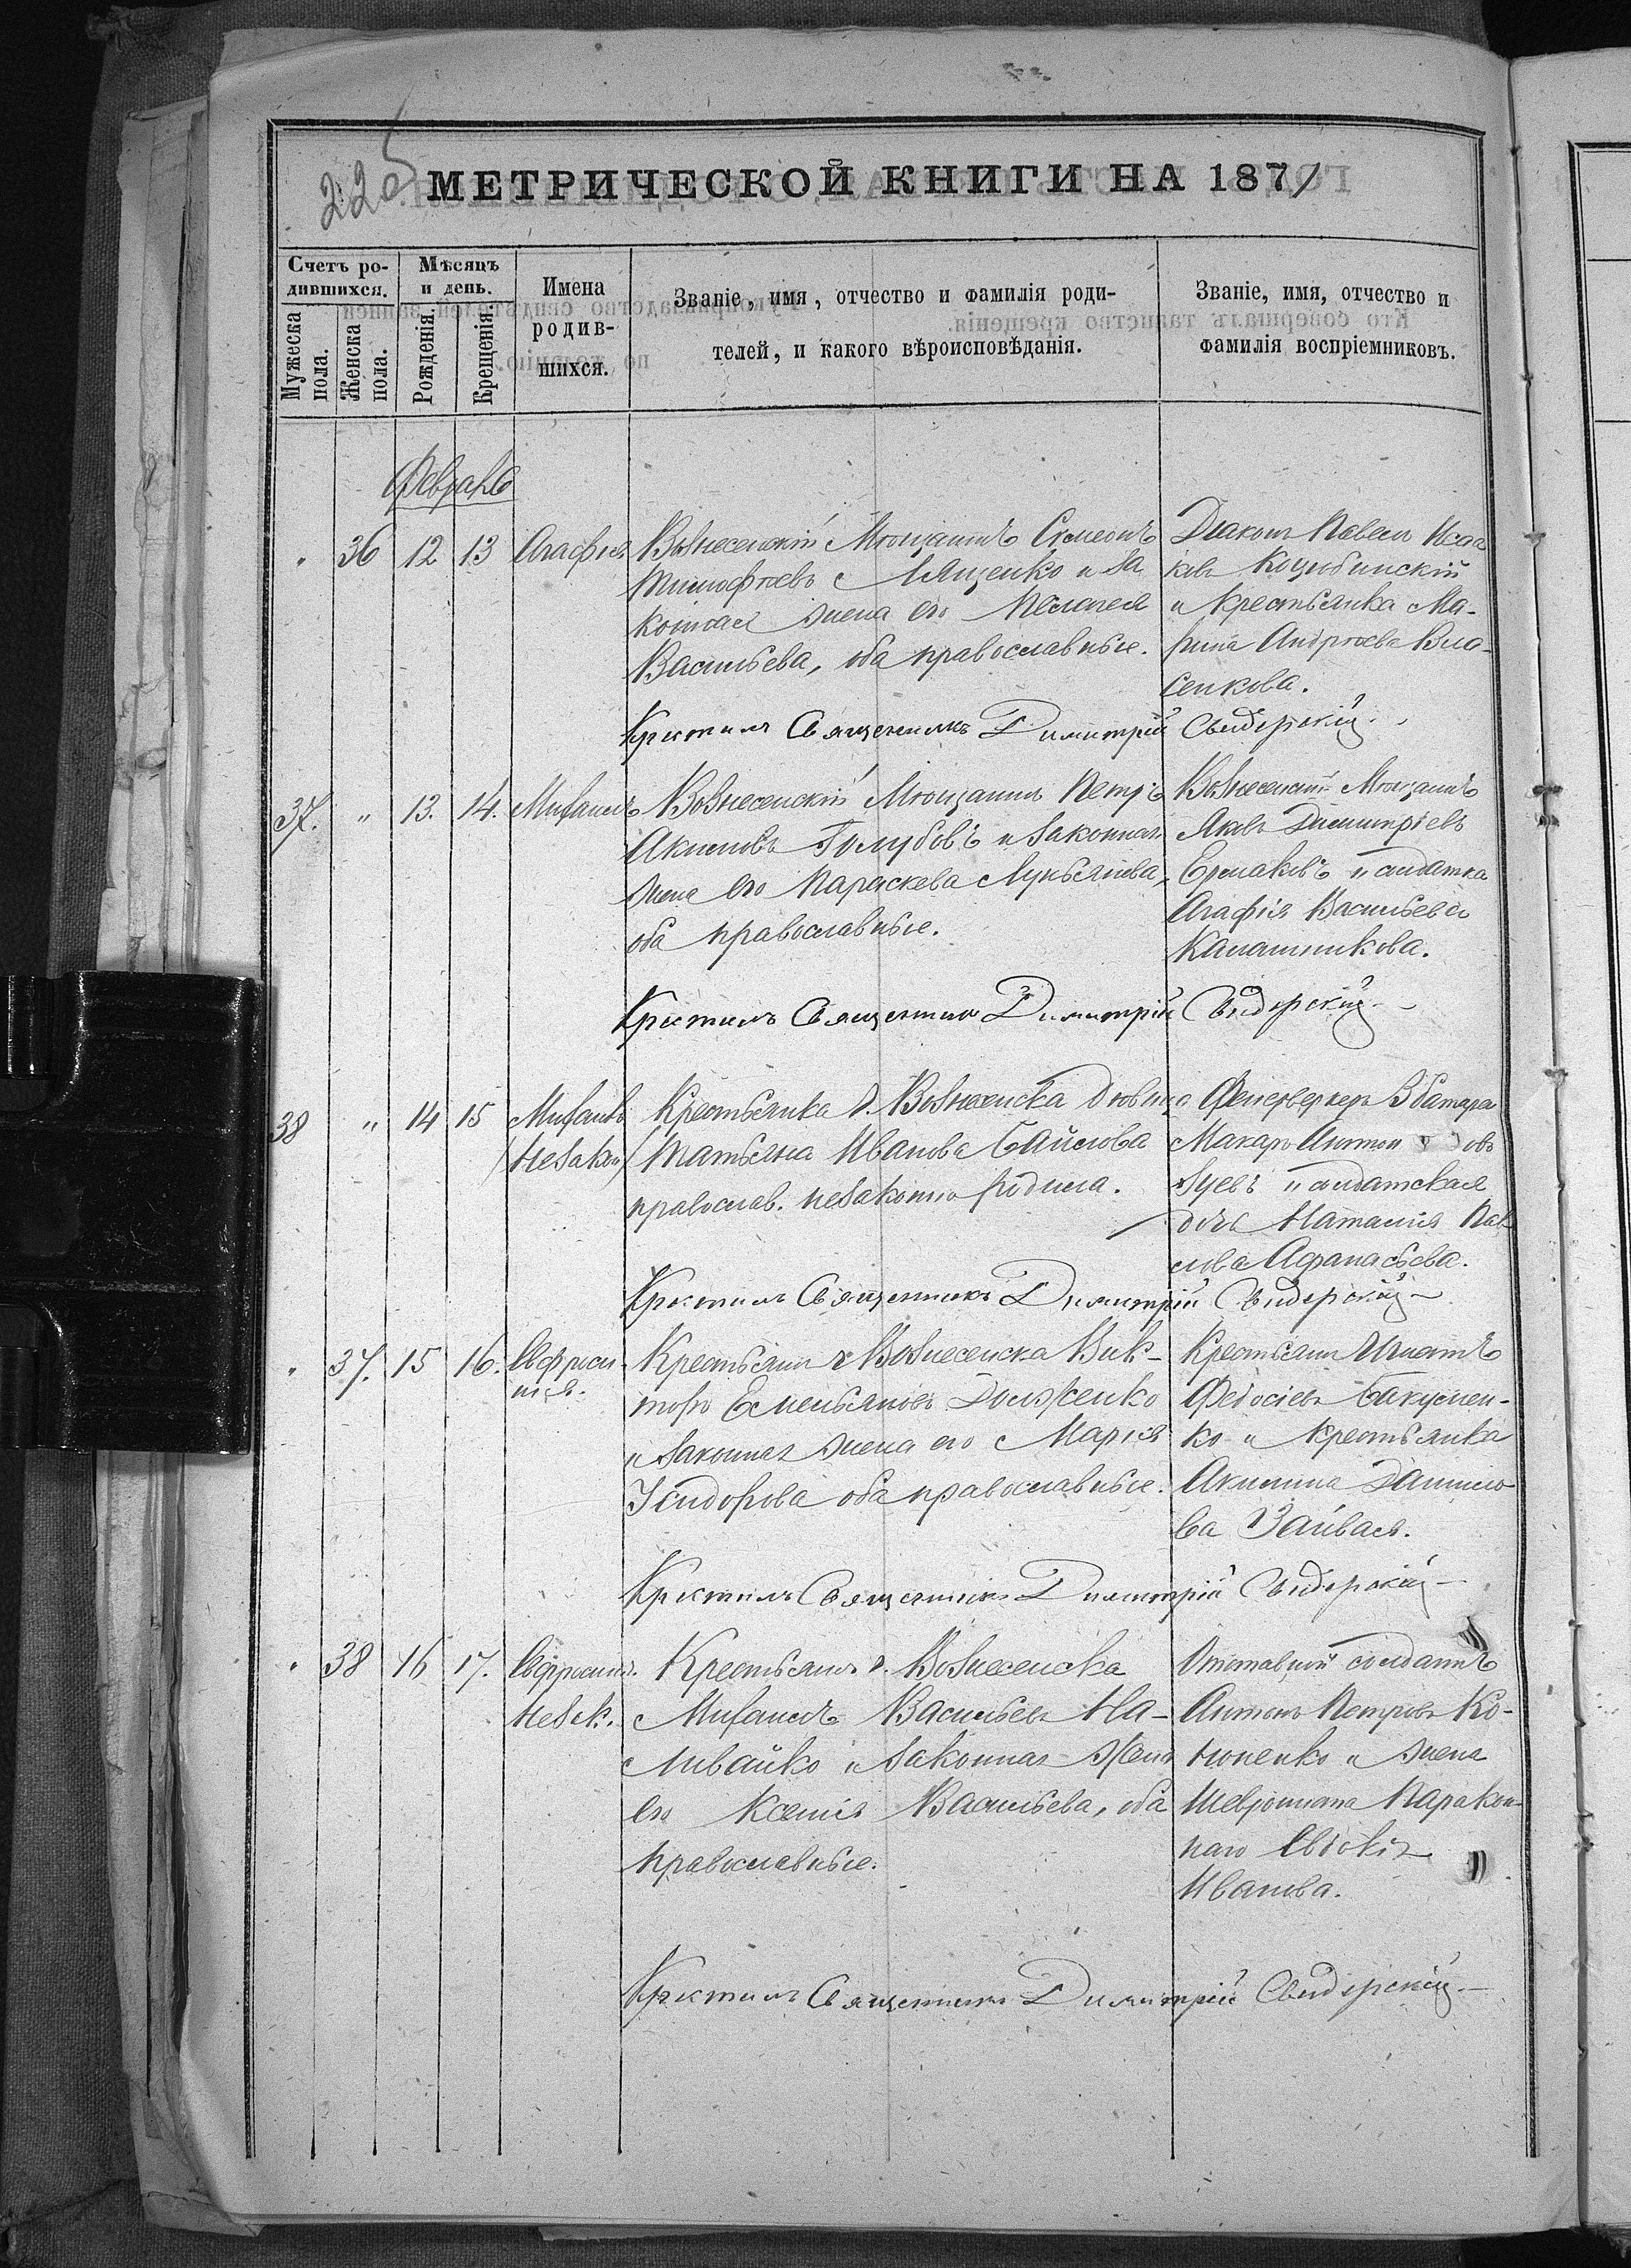 225
МЕТРИЧЕСКОЙ КНИГИ НА 1871
Счетъ ро-
дившихся.
Мужеска
пола.
Женска
пола.
Мѣсяцъ
и день.
Рожденія.
Крещенія.
Имена
родив-
шихся.
Званіе, имя, отчество и фамилія роди-
телей, и какого вѣроисповѣданія.
Званіе, имя, отчество и
фамилія воспріемниковъ.
Февраль
" 36 12 13 Агафія
Вознесенскій Мѣщанинъ Симеонъ
Тимофѣевъ Лященко и за
конная жена его Пелагея
Васильева, оба православные.
Діаконъ Павелъ Исаа
кіевъ Коцюбинскій
и крестьянка Ма-
рина Андрѣева Вла-
сенкова.
Крестилъ Священникъ Димитрій Свидерскій
37. " 13. 14. Михаилъ
Вознесенскій Мѣщанинъ Петръ
Акимовъ Голубовъ и законная
жена его Параскева Лукьянова,
оба православные.
Вознесенскій Мѣщанинъ
Яковъ Димитріевъ
Ермаковъ и солдатка
Агафія Васильева
Калашникова.
Крестилъ Священникъ Димитрій Свидерскій
38 " 14 15 Михаилъ
/незакон/
Крестьянка г. Вознесенска дѣвица
Татьяна Иванова
православ. незаконно родила.
Фейерверкеръ 3 батареи
Макаръ Антоновъ
Зуевъ и солдатская
дочь Наталія Пав
лова Афанасьева.
Крестилъ Священникъ Димитрій Свидерскій
" 37. 15 16. Евфроси-
нія.
Крестьянинъ г. Вознесенска Вик-
торъ Емельяновъ Долженко
и законная жена его Марія
Исидорова оба православные.
Крестьянинъ Игнатъ
Федосіевъ Бакумен-
ко и крестьянка
Акилина Данило
ва
Крестилъ Священникъ Димитрій Свидерскій
" 38 16 17. Евфросинія.
Незак.
Крестьянинъ г. Вознесенска
Михаилъ Васильевъ На-
ливайко и законная жена
его Ксенія Васильева, оба
православные.
Отставной солдатъ
Антонъ Петровъ Ко-
ноненко и жена
Ивано­ва.
Крестилъ Священникъ Димитрій Свидерскій